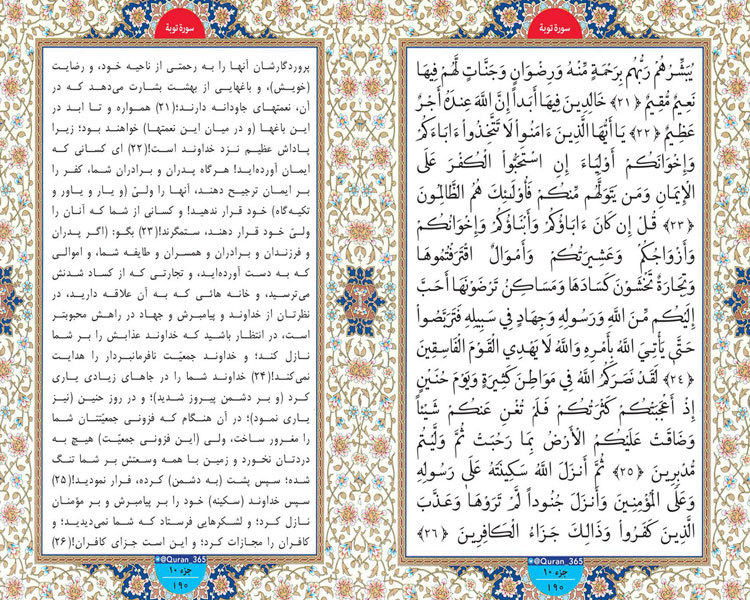 سورهٔ توبة
یُبَشِّرُهُمْ رَبُّهُم بِرَحْمَةٍ مِّنْهُ وَرِضْوَانٍ وَجَنَّاتٍ لَّهُمْ فِیهَا
نَعِیمٌ مُّقِیمٌ ﴿٢١﴾ خَالِدِینَ فِیهَا أَبَداً إِنَّ اللَّهَ عِندَهُ أَجْرٌ
عَظِیمٌ ﴿٢٢﴾ یَا أَیُّهَا الَّذِینَ ءَامَنُواْ لَا تَتَّخِذُواْ ءَابَاءَکُمْ
وَإِخْوَانَکُمْ أَوْلِیَاءَ إِنِ اسْتَحَبُّواْ الْکُفْرَ عَلَی
الْإِیمَانِ وَمَن یَتَوَلَّهُم مِّنکُمْ فَأُوْلَـئِکَ هُمُ الظَّالِمُونَ
﴿٢٣﴾ قُلْ إِن کَانَ ءَابَاؤُکُمْ وَأَبْنَاؤُکُمْ وَإِخْوَانُکُمْ
وَأَزْوَاجُکُمْ وَعَشِیرَتُکُمْ وَأَمْوَالٌ اقْتَرَفْتُمُوهَا
وَتِجَارَةٌ تَخْشَوْنَ کَسَادَهَا وَمَسَاکِنُ تَرْضَوْنَهَا أَحَبَّ
إِلَیْکُم مِّنَ اللَّهِ وَرَسُولِهِ وَجِهَادٍ فِی سَبِیلِهِ فَتَرَبَّصُواْ
حَتَّی یَأْتِیَ اللَّهُ بِأَمْرِهِ وَاللَّهُ لَا یَهْدِی الْقَوْمَ الْفَاسِقِینَ
﴿٢٤﴾ لَقَدْ نَصَرَکُمُ اللَّهُ فِی مَوَاطِنَ کَثِیرَةٍ وَیَوْمَ حُنَیْنٍ
إِذْ أَعْجَبَتْکُمْ کَثْرَتُکُمْ فَلَمْ تُغْنِ عَنکُمْ شَیْئاً
وَضَاقَتْ عَلَیْکُمُ الْأَرْضُ بِمَا رَحُبَتْ ثُمَّ وَلَّیْتُم
مُّدْبِرِینَ ﴿٢٥﴾ ثُمَّ أَنزَلَ اللَّهُ سَکِینَتَهُ عَلَی رَسُولِهِ
وَعَلَی الْمُؤْمِنِینَ وَأَنزَلَ جُنُوداً لَّمْ تَرَوْهَا وَعَذَّبَ
الَّذِینَ کَفَرُواْ وَذَالِکَ جَزَاءُ الْکَافِرِینَ ﴿٢٦﴾
@Quran_365
جزء ١٠
١٩٠
سورهٔ توبة
پروردگارشان آنها را به رحمتی از ناحیه خود، و رضایت
(خویش)، و باغهایی از بهشت بشارت می‌دهد که در
آن، نعمتهای جاودانه دارند؛(۲۱) همواره و تا ابد در
این باغها (و در میان این نعمتها) خواهند بود؛ زیرا
پاداش عظیم نزد خداوند است!(۲۲) ای کسانی که
ایمان آورده‌اید! هرگاه پدران و برادران شما، کفر را
بر ایمان ترجیح دهند، آنها را ولیّ (و یار و یاور و
تکیه‌گاه) خود قرار ندهید! و کسانی از شما که آنان را
ولیّ خود قرار دهند، ستمگرند!(۲۳) بگو: (اگر پدران
و فرزندان و برادران و همسران و طایفه شما، و اموالی
که به دست آورده‌اید، و تجارتی که از کساد شدنش
می‌ترسید، و خانه هائی که به آن علاقه دارید، در
نظرتان از خداوند و پیامبرش و جهاد در راهش محبوبتر
است، در انتظار باشید که خداوند عذابش را بر شما
نازل کند؛ و خداوند جمعیّت نافرمانبردار را هدایت
نمی‌کند!(۲۴) خداوند شما را در جاهای زیادی یاری
کرد (و بر دشمن پیروز شدید)؛ و در روز حنین (نیز
یاری نمود)؛ در آن هنگام که فزونی جمعیّتتان شما
را مغرور ساخت، ولی (این فزونی جمعیّت) هیچ به
دردتان نخورد و زمین با همه وسعتش بر شما تنگ
شده؛ سپس پشت (به دشمن) کرده، فرار نمودید!(۲۵)
سپس خداوند (سکینه) خود را بر پیامبرش و بر مؤمنان
نازل کرد؛ و لشکرهایی فرستاد که شما نمی‌دیدید؛ و
کافران را مجازات کرد؛ و این است جزای کافران!(۲۶)
@Quran_365
جزء ١٠
١٩٠